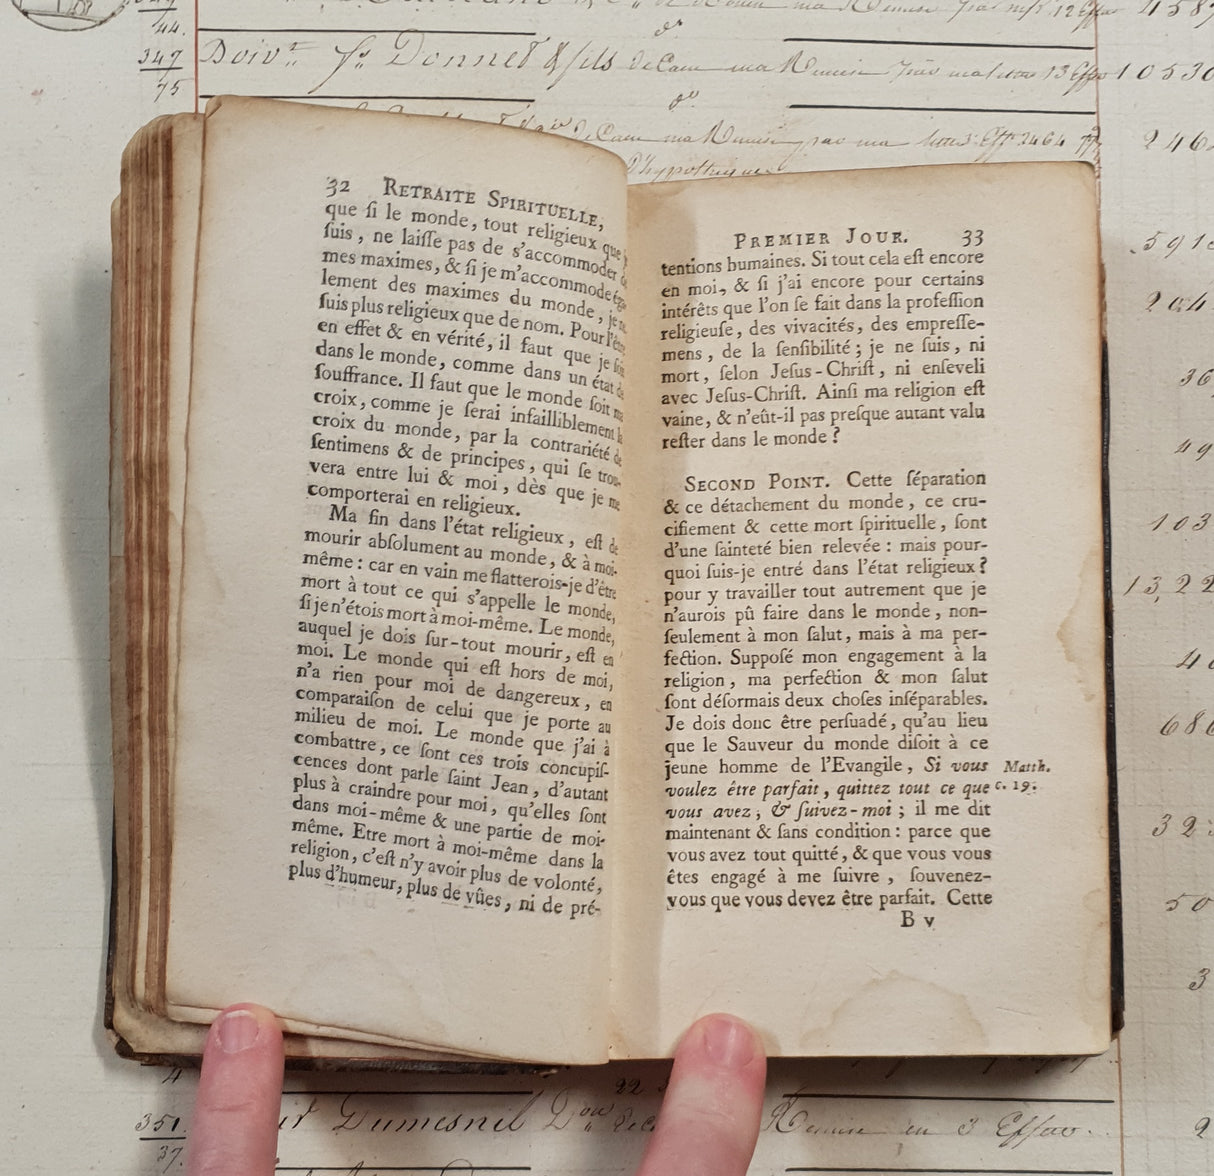 32 RETRAITE SPIRITUELLE,
que ſi le monde, tout religieux que
ſuis, ne laiſſe pas de s'accommoder
mes maximes, & ſi je m'accommode éga-
lement des maximes du monde, je ne
ſuis plus religieux que de nom. Pour l'être
en effet & en vérité, il faut que je ſois
dans le monde, comme dans un état de
ſouffrance. Il faut que le monde ſoit ma
croix, comme je ſerai infailliblement la
croix du monde, par la contrariété de
ſentimens & de principes, qui ſe trou-
vera entre lui & moi, dès que je me
comporterai en religieux.
Ma fin dans l'état religieux, eſt de
mourir abſolument au monde, & à moi-
même : car en vain me flatterois-je d'être
mort à tout ce qui s'appelle le monde,
ſi je n'étois mort à moi-même. Le monde,
auquel je dois ſur-tout mourir, eſt en
moi. Le monde qui eſt hors de moi,
n'a rien pour moi de dangereux, en
comparaiſon de celui que je porte au
milieu de moi. Le monde que j'ai à
combattre, ce ſont ces trois concupiſ-
cences dont parle ſaint Jean, d'autant
plus à craindre pour moi, qu'elles ſont
dans moi-même & une partie de moi-
même. Etre mort à moi-même dans la
religion, c'eſt n'y avoir plus de volonté,
plus d'humeur, plus de vûes, ni de pré-
PREMIER JOUR. 33
tentions humaines. Si tout cela eſt encore
en moi, & ſi j'ai encore pour certains
intérêts que l'on ſe fait dans la profeſſion
religieuſe, des vivacités, des empreſſe-
mens, de la ſenſibilité ; je ne ſuis, ni
mort, ſelon Jeſus-Chriſt, ni enſeveli
avec Jeſus-Chriſt. Ainſi ma religion eſt
vaine, & n'eût-il pas preſque autant valu
reſter dans le monde ?
SECOND POINT. Cette ſéparation
& ce détachement du monde, ce cru-
cifiement & cette mort ſpirituelle, ſont
d'une ſainteté bien relevée : mais pour-
quoi ſuis-je entré dans l'état religieux ?
pour y travailler tout autrement que je
n'aurois pû faire dans le monde, non-
ſeulement à mon ſalut, mais à ma per-
fection. Suppoſé mon engagement à la
religion, ma perfection & mon ſalut
ſont déſormais deux choſes inſéparables.
Je dois donc être perſuadé, qu'au lieu
que le Sauveur du monde diſoit à ce
jeune homme de l'Evangile, Si vous
voulez être parfait, quittez tout ce que
vous avez, & ſuivez-moi ; il me dit
maintenant & ſans condition : parce que
vous avez tout quitté, & que vous vous
êtes engagé à me ſuivre, ſouvenez-
vous que vous devez être parfait. Cette
B v
Matth.
c. 19.
44.
347
75
Donnet & fils de Caen
10530
246
d'hypothèque
591
204
36
49
103
13,22
40
686
32
50
3
351
37.
Dumesnil